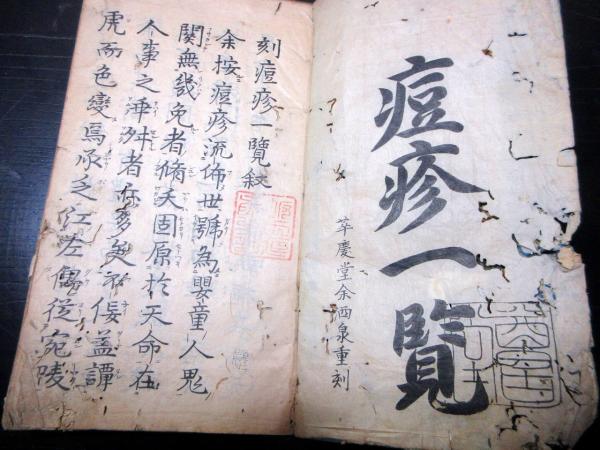 痘疹一覽
萃慶堂余泗泉重刻
刻痘疹一覽叙
余按痘疹流佈世號為嬰童人鬼
關無幾免者脩夭固原於天命在
人事之者亦多矣不佞蓋譚
虎而色變焉丞之江左偶從宛陵